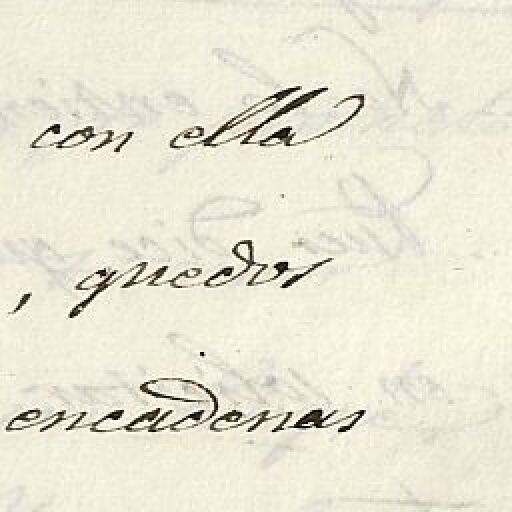 con ella
, quedos
encadenas